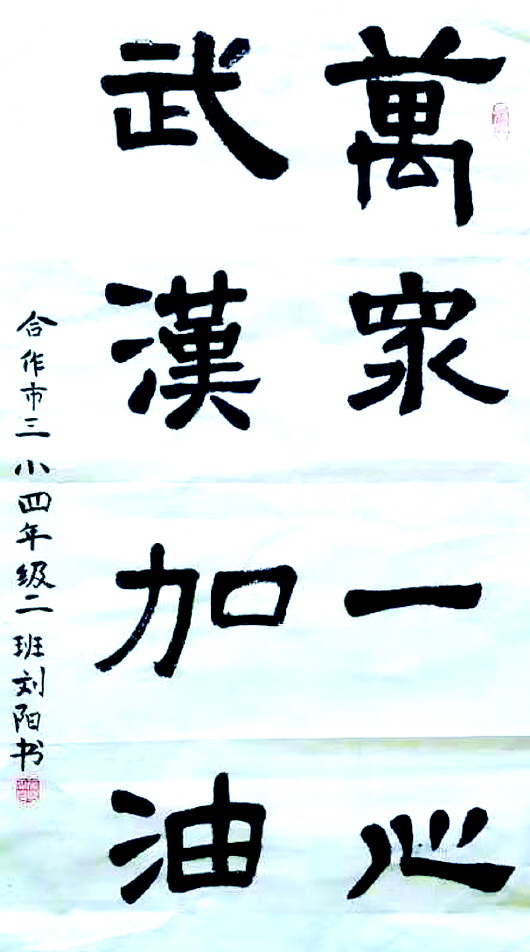 萬眾一心
武漢加油
合作市三小四年级二班刘阳书